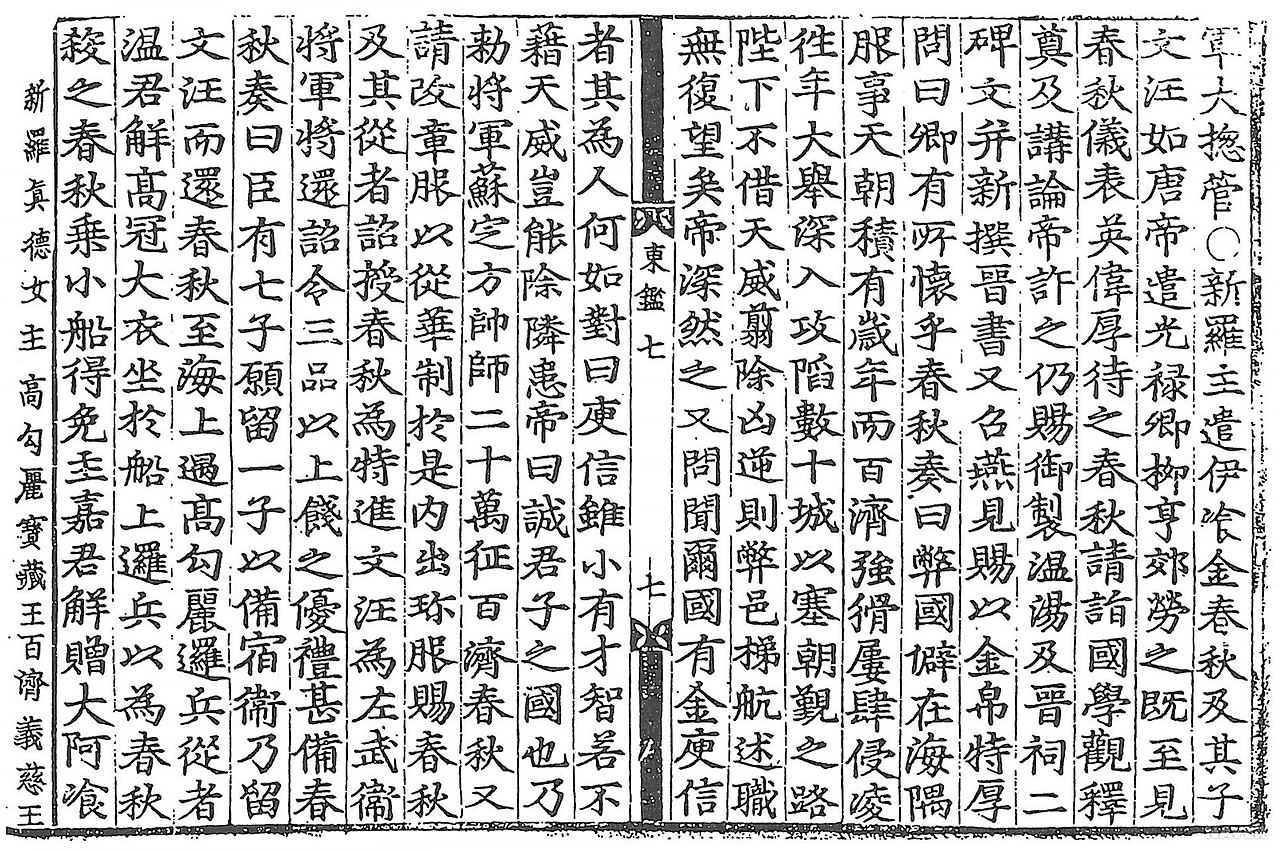 軍大摠管○新羅主遣伊飡金春秋及其子
文汪如唐帝遣光禄卿柳亨郊勞之既至見
春秋儀表英偉厚待之春秋請詣國學觀釋
奠及講論帝許之仍賜御製温湯及晉祠二
碑文幷新撰晉書又召燕見賜以金帛特厚
問曰卿有所懷乎春秋奏曰弊國僻在海隅
服事天朝積有歲年而百濟強猾屢肆侵凌
徃年大舉深入攻陷數十城以塞朝觀之路
陛下不借天威翦除凶逆則弊邑梯航述職
無復望矣帝深然之又問聞爾國有金庾信
東鑑七
七
者其為人何如對曰庾信雖小有才智若不
藉天威豈能除隣患帝曰誠君子之國也乃
勑將軍蘇定方帥師二十萬征百濟春秋又
請改章服以從華制於是内出珎服賜春秋
及其從者詔授春秋為特進文汪為左武衛
將軍將還詔令三品以上餞之優禮甚備春
秋奏曰臣有七子願留一子以備宿衞乃留
文汪而還春秋至海上遇高勾麗邏兵從者
温君解髙冠大衣坐於船上邏兵以為春秋
殺之春秋乗小船得免主嘉君解贈大阿飡
新羅眞德女主 高勾麗寶藏王百濟義慈王